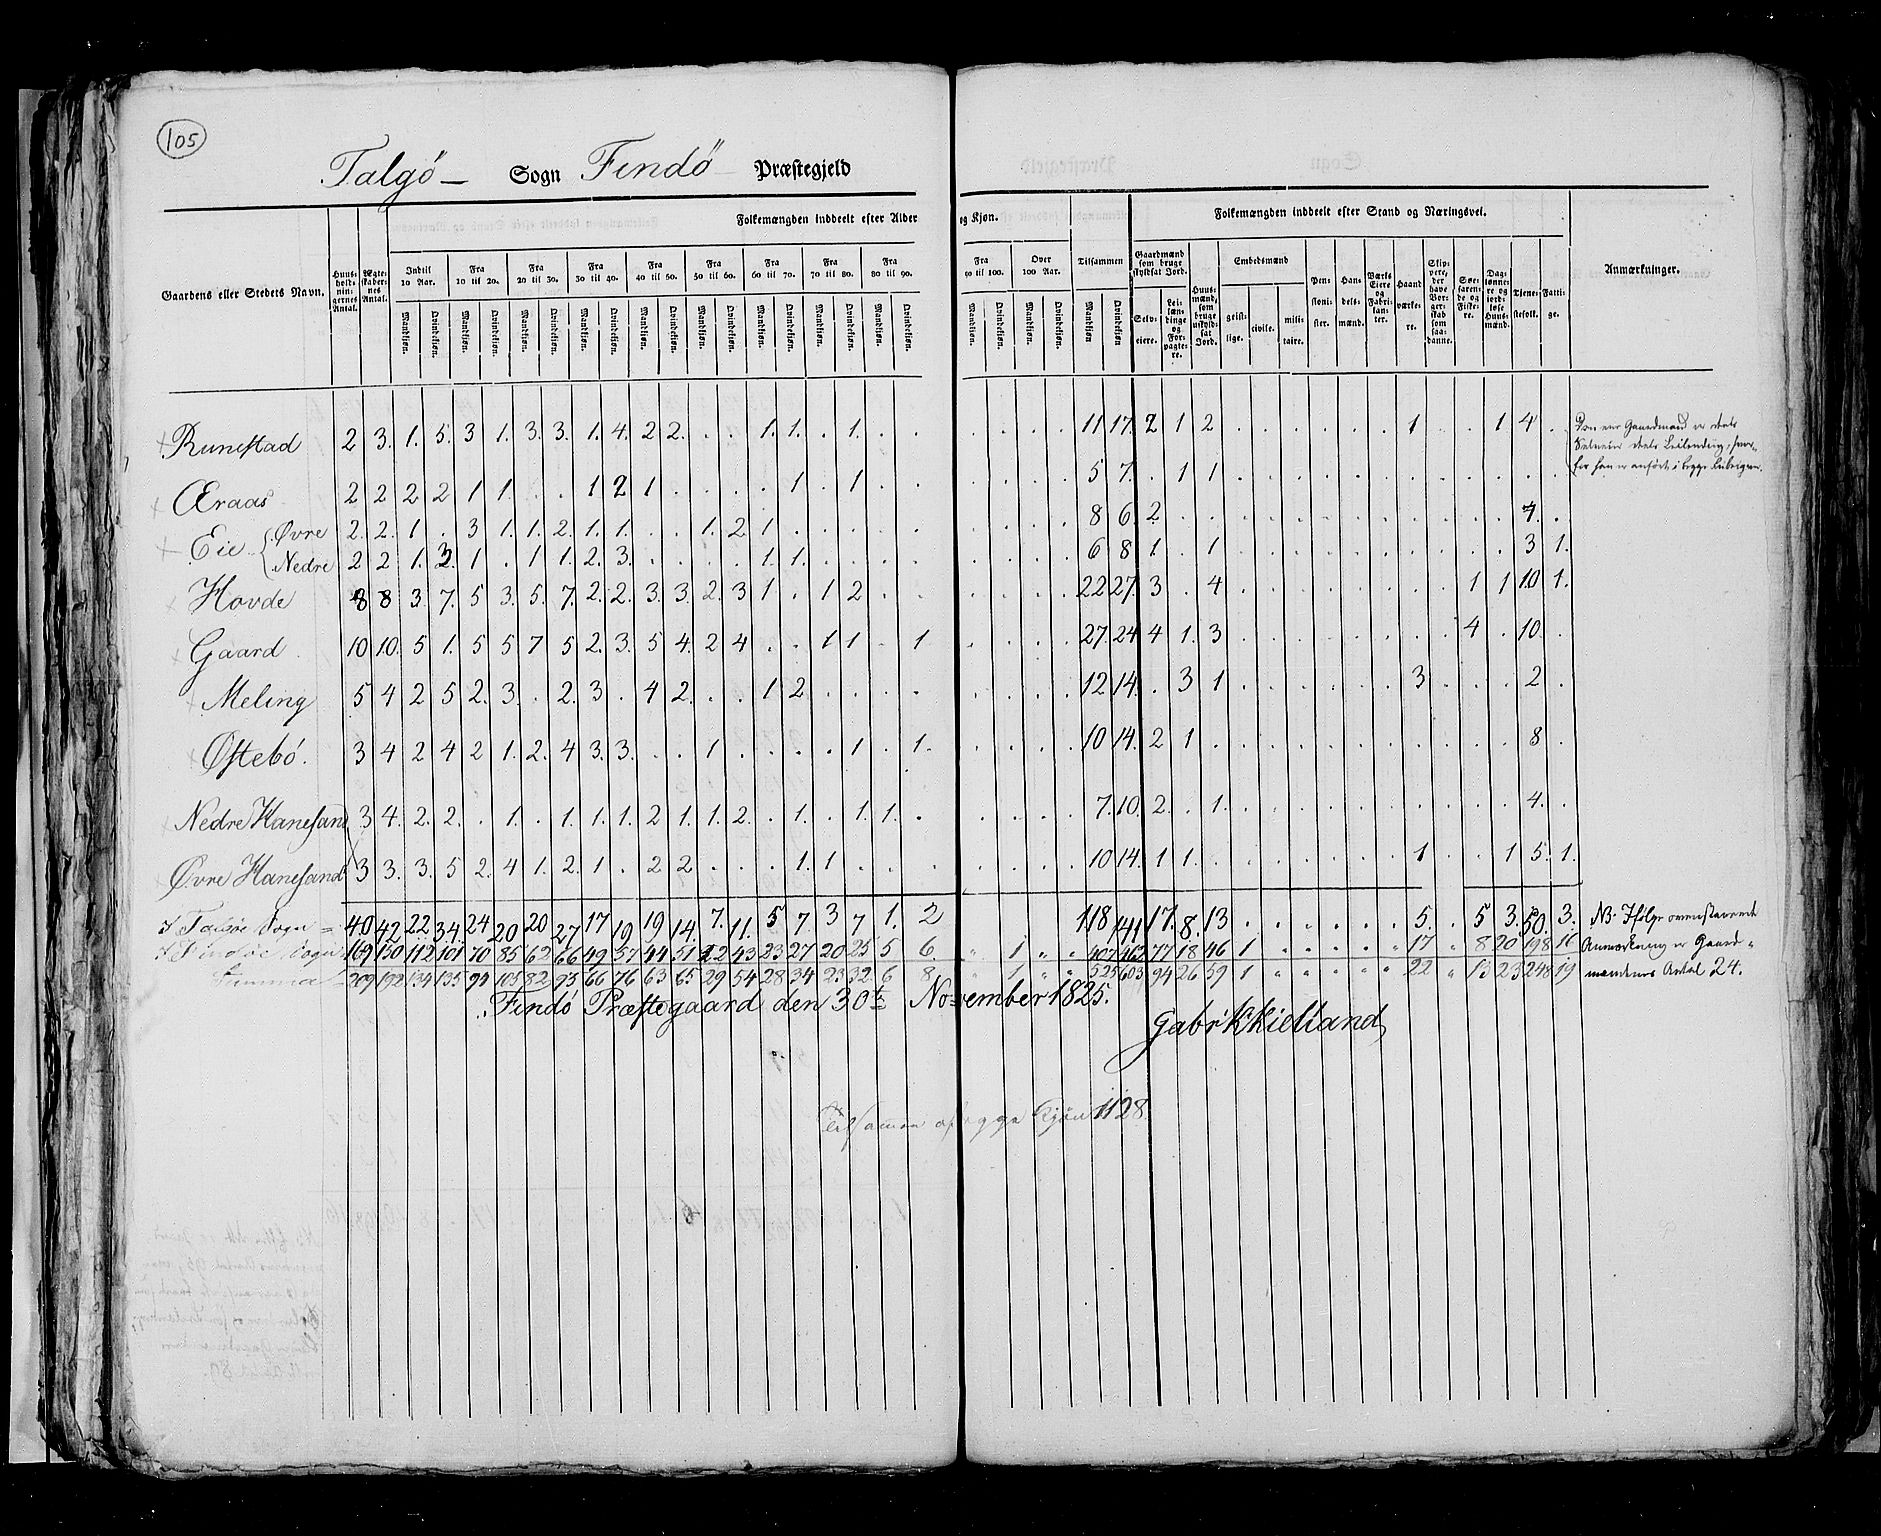 105
Talgö – Sogn Findö – Præstegjeld
Gaardens eller Stedets Navn.
Huus-hold-nin-gernes Antal.
Ægte-skaber-nes Antal.
Folkemængden inddeelt efter Alder og Kjøn.
Indtil 10 Aar.
Fra 10 til 20.
Fra 20 til 30.
Fra 30 til 40.
Fra 40 til 50.
Fra 50 til 60.
Fra 60 til 70.
Fra 70 til 80.
Fra 80 til 90.
Fra 90 til 100.
Over 100 Aar.
Tilsammen
Mandkjøn. Qvindekjøn.
Folkemængden inddeelt efter Stand og Næringsvei.
Gaardmænd som bruge skyldsat Jord.
Selv-eiere.
Lei-læn-dinge og For-pagte-re.
Huus-mænd, som bruge uskyld-sat Jord.
Embedsmænd
geist-lige. civile. mili-taire.
Pen-sioni-ster.
Han-dels-mænd.
Værks Eiere og Fabri-kan-ter.
Haand værke-re.
Skip-pere, der have Bor-ger-skab som saa-danne.
Søe-faren-de og Fiske-re.
Dag-lønne-re og jord-løse Huus-mænd.
Tjene-stefolk.
Fatti-ge.
Anmærkninger.
Runestad 2 3. 1. 5. 3 1. 3. 3. 1. 4. 2 2. . . 1. 1. . 1. . . . . . . 11 17. 2 1 2 . . . . . . 1 . . 1 4 .
Den ene Gaardmand er deels
Selveier deels Leilending, hvor-
for han er anført i begge Rubrigver.
Æraas 2 2 2 2 1 1. . . 1 2 1 . . . . 1 . 1 . . . . . . 5 7. . 1 1 . . . . . . . . . . . .
Eie { Øvre 2. 2. 1 . 3 1. 1. 2. 1. 1. . . 1. 2 1 . . . . . . . . . 8 6. 2 . . . . . . . . . . . . 4. .
Nedre 2 2 1. 3. 1 . 1 1. 2. 3. . . . . 1. 1. . . . . . . . . 6 8 1. . 1 . . . . . . . . . . 3 1.
Hovde 8 8 3. 7. 5 3. 5. 7. 2. 2. 3. 3. 2. 3 1 . 1 2 . . . . . . 22 27. 3 . 4 . . . . . . . . 1 1 10 1.
Gaard 10 10. 5 1. 5 5 7 5 2. 3. 5 4. 2 4 . . 1 1 . 1 . . . . 27. 24 4 1. 3 . . . . . . . . 4 . 10. .
Meling 5 4 2 5 2. 3. . 2. 3 . 4 2 . . 1 2 . . . . . . . . 12 14. . 3 1 . . . . . . 3 . . . 2 .
Østebö. 3 4 2 4 2 1. 2. 4 3. 3. . . 1 . . . . 1 . 1. . . . . 10 14. 2 1 . . . . . . . . . . . 8 .
Nedre Hanesand 3 4. 2. 2. . 1. . 1. 1. 1. 2 1. 1. 2 . 1. . 1. 1. . . . . . 7. 10. 2 . 1. . . . . . . . . . . 4. .
Øvre Hanesand 3 3. 3. 5 2. 4 1. 2. 1 . 2 2 . . . 1. 1 . . . . . . . 10 14. 1 1. . . . . . . . 1 . . 1 5. 1.
I Talgöe Sogn = 40 42 22 34. 24 20 20 27 17 19 19 14. 7. 11. 5 7. 3 7 1. 2 118 141 17. 8. 13 . . . . . . 5. . 5 3. 50. 3.
I Findöe Sogn 169 150 112 101 70 85 62 66 49 57 44 51 22 43 23 27 20 25 5 6 " 1 " " 407 462 77 18 46 1 " " " " " 17 " 8 20 198 16
Summa 209 192 134 135 94 105 82 93 66 76 63 65 29 54 28 34 23 32 6 8 " 1 " " 525 603 94 26 59 1 " " " " " 22 " 13 23 248 19
NB. Ifølge ovenstaaende
Anmærkning er Gaard-
mændenes Antal 24.
Findö Præstegaard den 30te November 1825.
Gabr: K Kielland
Tilsamen af begge Kjön 1128.